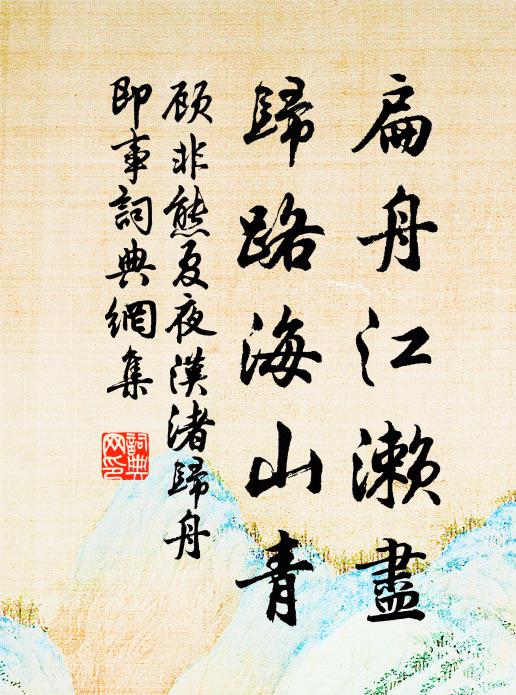 扁舟江瀨盡
歸路海山青
顧非熊夏夜漢渚歸舟
即事詞典網集
詞典
网印